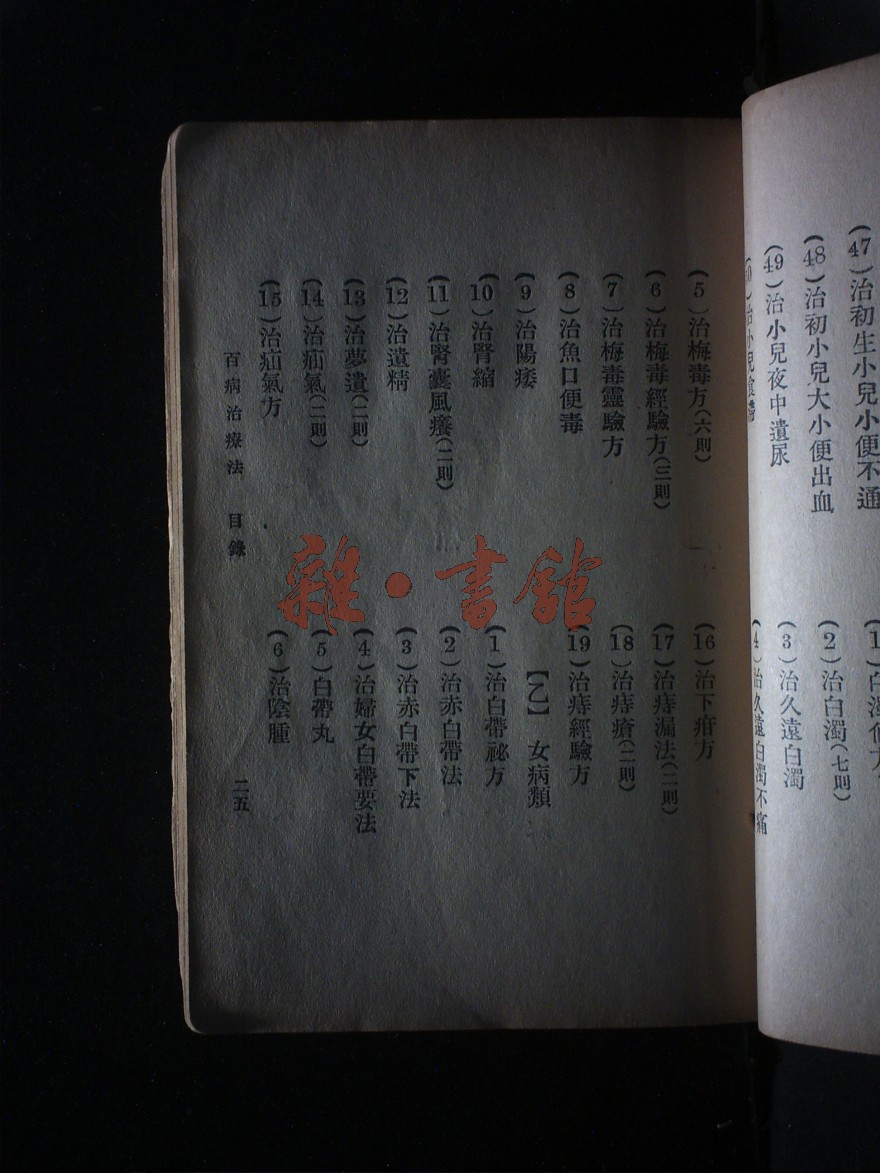 (47)治初生小兒小便不通
(48)治初小兒大小便出血
(49)治小兒夜中遺尿
(2)治白濁(七則)
(3)治久遠白濁
(4)治久遠白濁不痛
(5)治梅毒方(六則)
(6)治梅毒經驗方(三則)
(7)治梅毒靈驗方
(8)治魚口便毒
(9)治陽痿
(10)治腎縮
(11)治腎囊風癢(二則)
(12)治遺精
(13)治夢遺(二則)
(14)治疝氣(二則)
(15)治疝氣方
(16)治下疳方
(17)治痔漏法(二則)
(18)治痔瘡(二則)
(19)治痔經驗方
【乙】 女病類
(1)治白帶祕方
(2)治赤白帶法
(3)治赤白帶下法
(4)治婦女白帶要法
(5)白帶丸
(6)治陰腫
百病治療法 目錄 二五
雜·書館